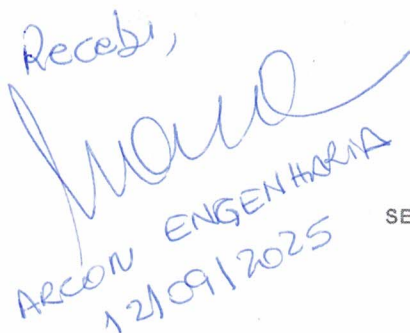 Recebi,
ARCON ENGENHARIA
SE
12/09/2025